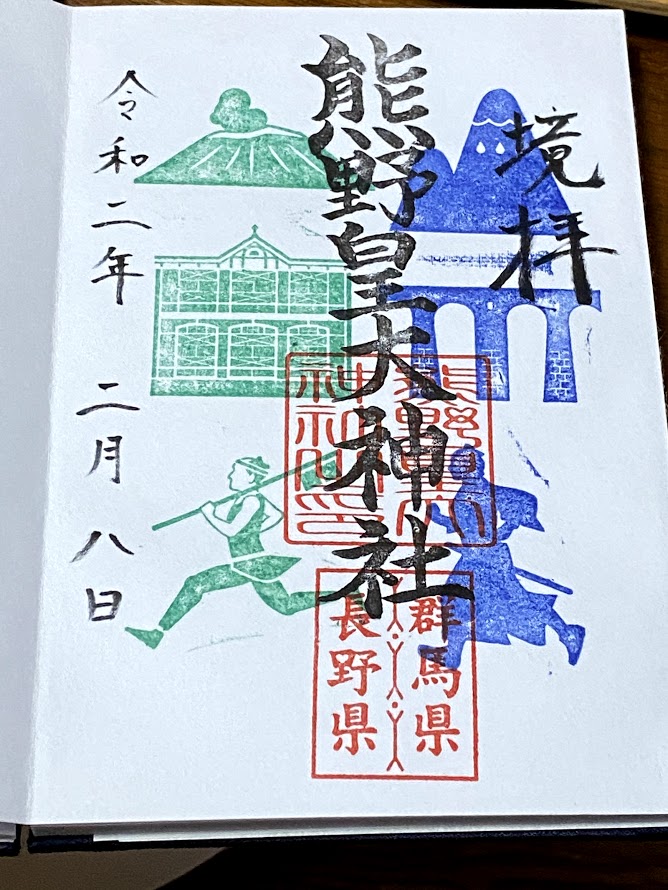 境拝
熊野皇大神社
群馬県
長野県
令和二年 二月八日